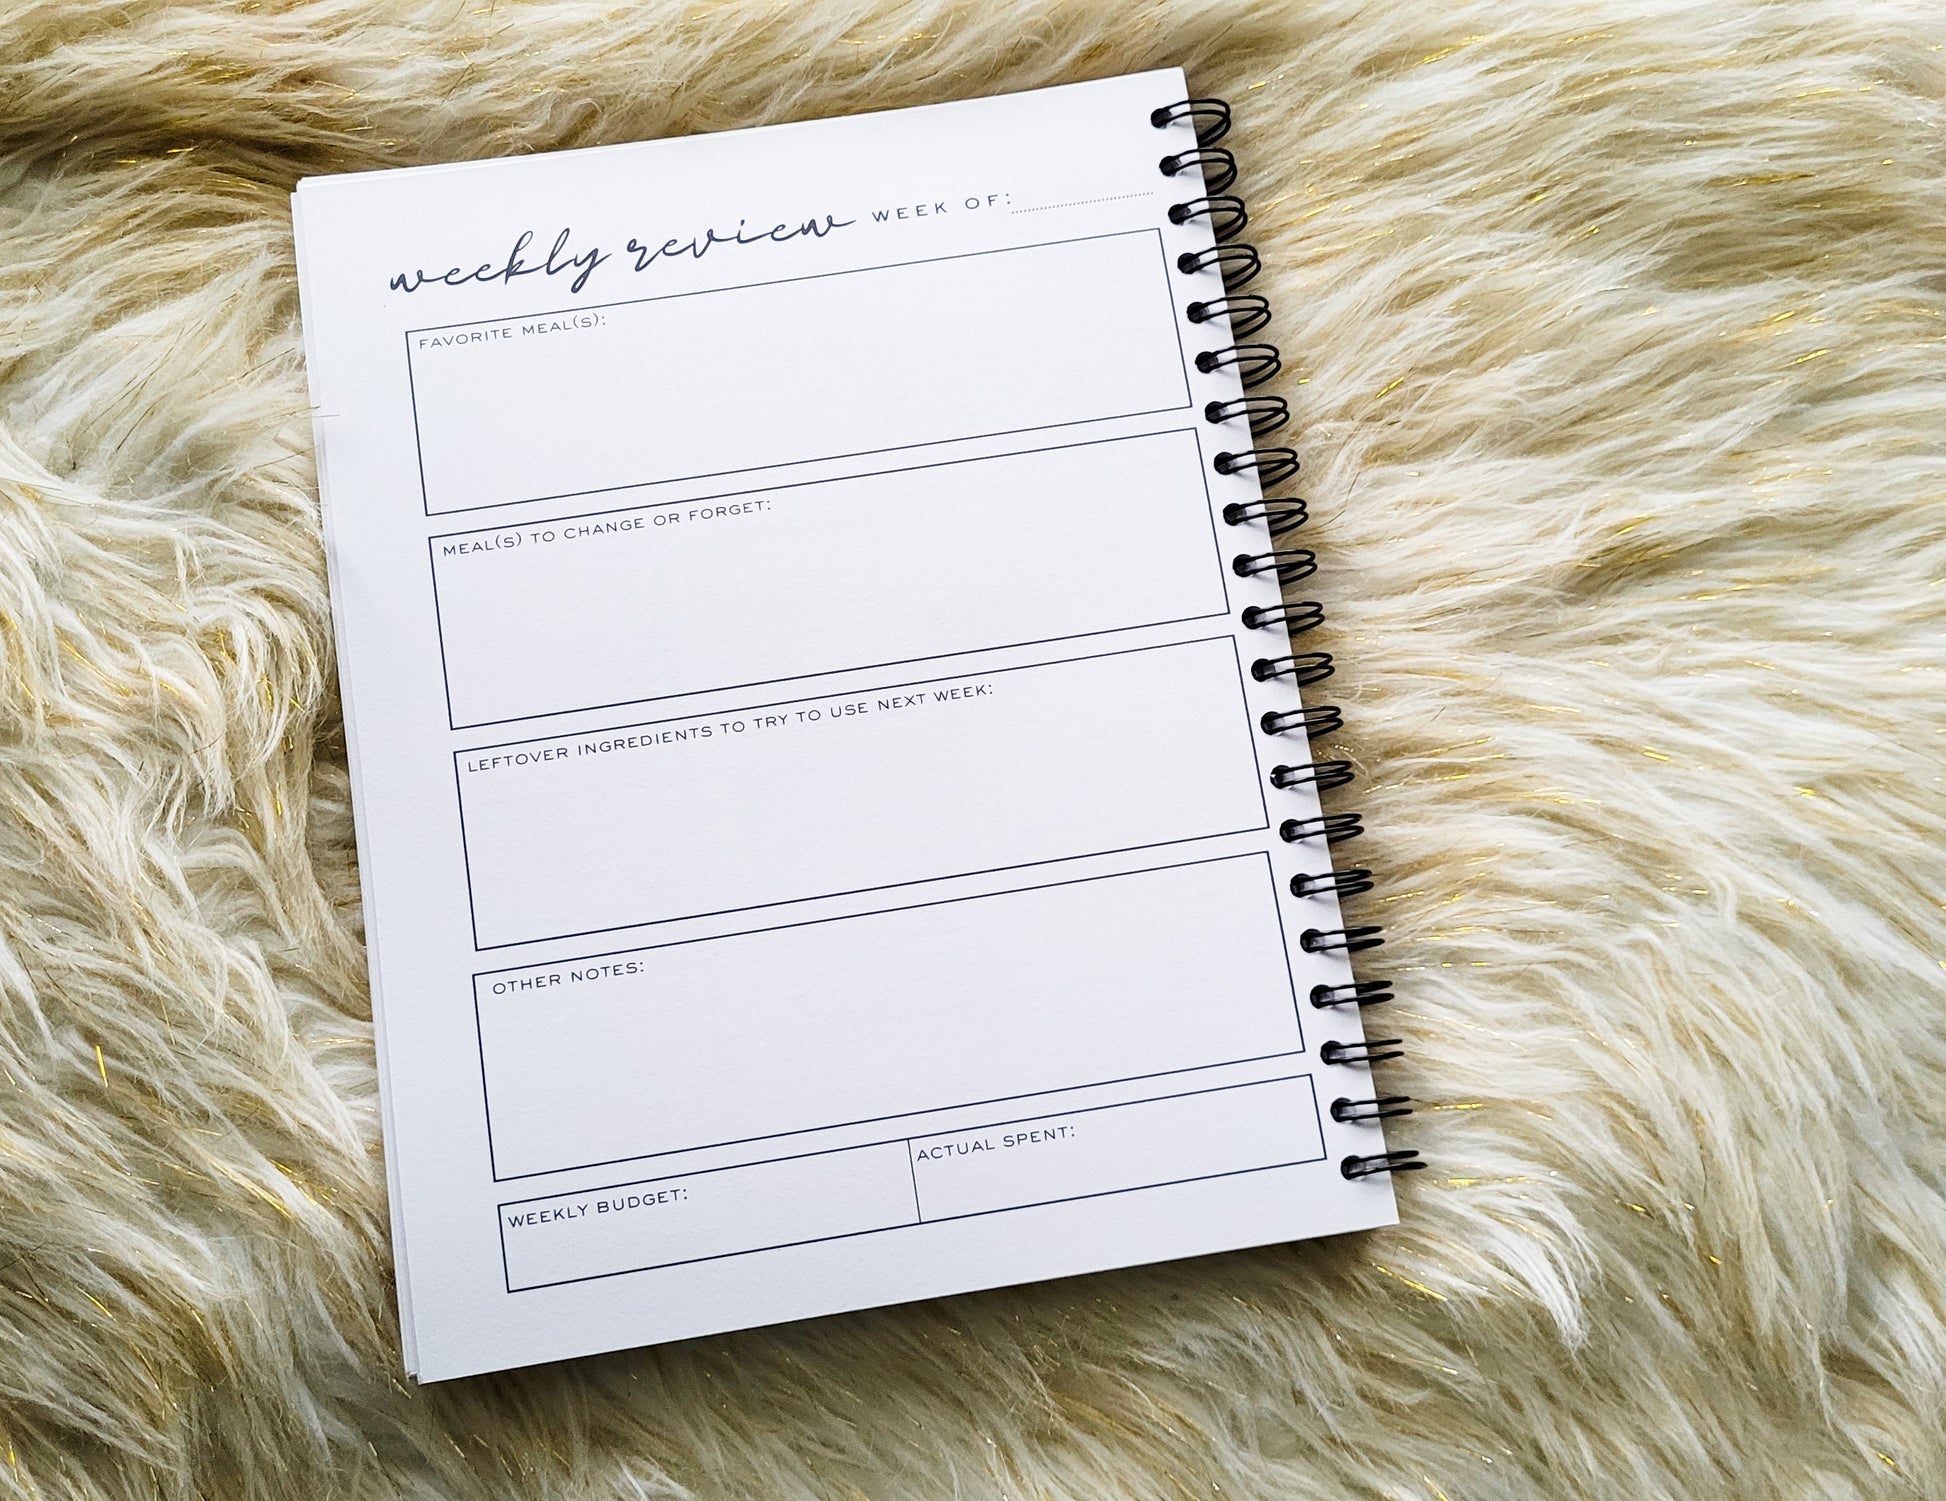 weekly review WEEK OF:
FAVORITE MEAL(S):
MEAL(S) TO CHANGE OR FORGET:
LEFTOVER INGREDIENTS TO TRY TO USE NEXT WEEK:
OTHER NOTES:
WEEKLY BUDGET:
ACTUAL SPENT: